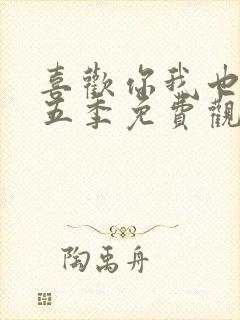 喜歡你我也
五季免費觀
陶禹舟